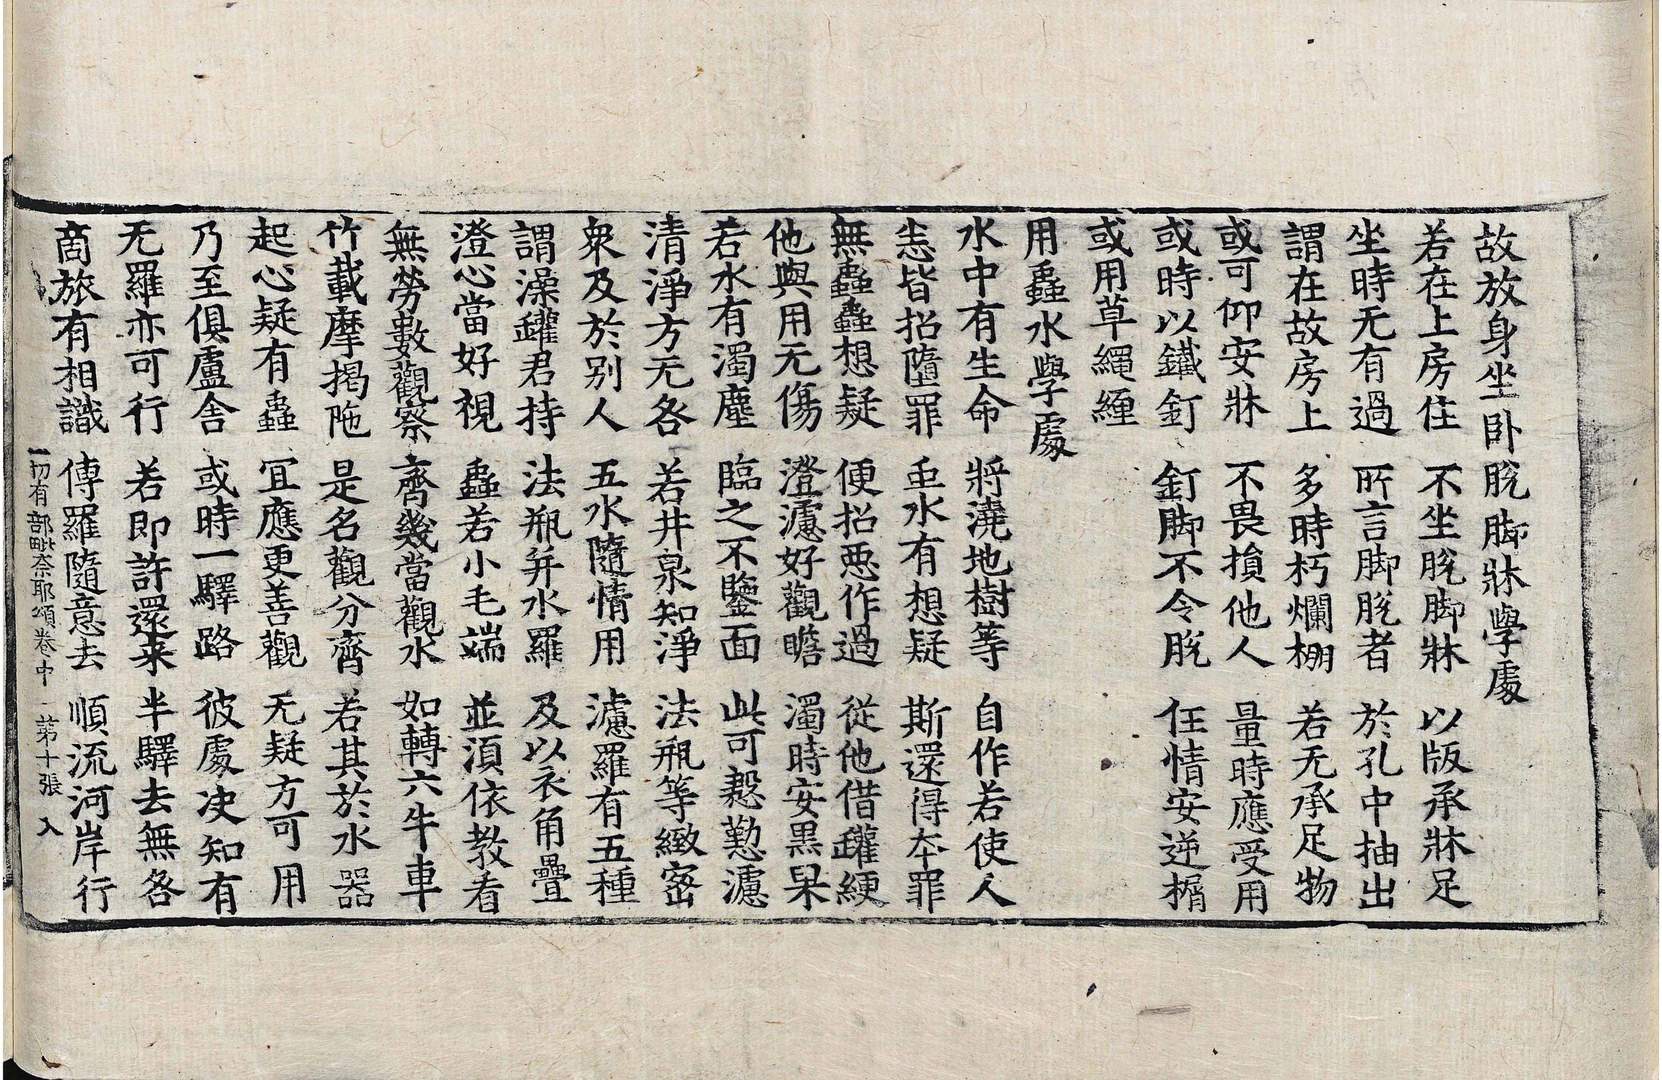 故放身坐卧脫脚牀學處
若在上房住　不坐脫脚牀　以版承牀足
坐時无有過　所言脚脫者　於孔中抽出
謂在故房上　多時朽爛棚　若无承足物
或可仰安牀　不畏損他人　量時應受用
或時以鐵釘　釘脚不令脫　任情安逆楔
或用草繩縆
用蟲水學處
水中有生命　將澆地樹等　自作若使人
恙皆招墮罪　虫水有想疑　斯還得夲罪
無蟲蟲想疑　便招悪作過　從他借罐綆
他與用无傷　澄濾好觀瞻　濁時安黒杲
若水有濁塵　臨之不鑒面　此可慇懃濾
清淨方无咎　若井泉知淨　法瓶等緻宻
衆及於别人　五水隨情用　濾羅有五種
謂澡罐君持　法瓶并水羅　及以衣角疊
澄心當好視　蟲若小毛端　並湏依教看
無勞數觀察　齊幾當觀水　如轉六牛車
竹載摩揭陁　是名觀分齊　若其於水器
起心疑有蟲　冝應更善觀　无疑方可用
乃至俱盧舍　或時一驛路　彼處决知有
无羅亦可行　若即許還来　半驛去無咎
商旅有相識　傳羅隨意去　順流河岸行
一切有部毗奈耶頌卷中　第十張　入